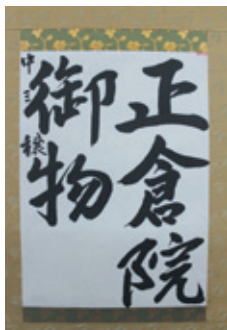 正倉院
御物
中三 穣